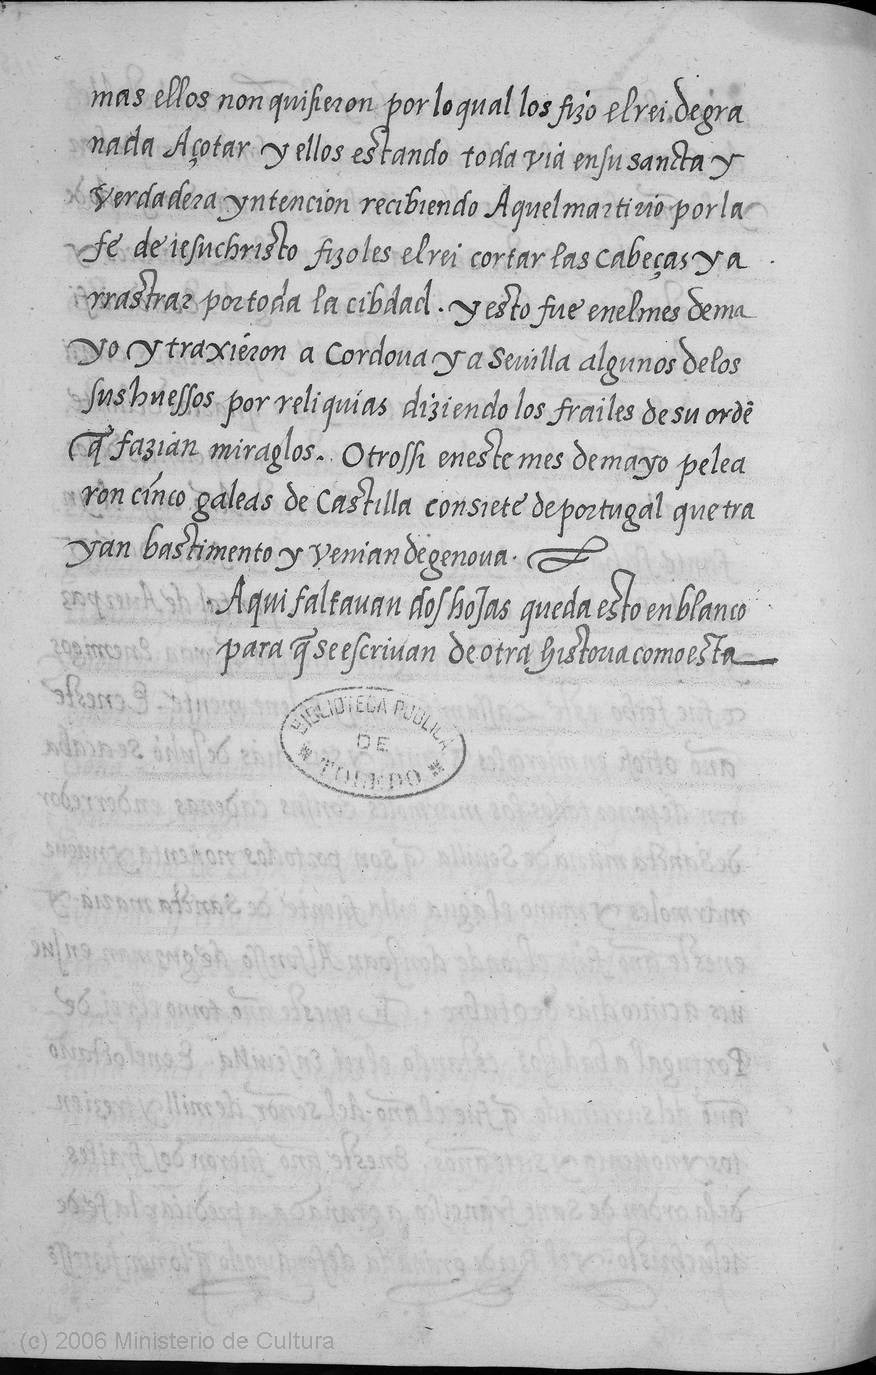 mas ellos non quisieron por lo qual los fizo el rei de gra
nada Açotar y ellos estando toda via en su sancta y
verdadera yntencion recibiendo Aquel martirio por la
fe de iesuchristo fizoles el rei cortar las cabeças y a
rrastrar por toda la cibdad. y esto fue en el mes de ma
yo y traxieron a Cordoua y a Seuilla algunos de los
sus huessos por reliquias diziendo los frailes de su ordē
q̄ fazian miraglos. Otrossi en este mes de mayo pelea
ron cinco galeas de Castilla con siete de portugal que tra
yan bastimento y venian de genoua.
Aqui faltauan dos hojas queda esto en blanco
para q̄ se escriuan de otra historia como esta
BIBLIOTECA PUBLICA
DE
* TOLEDO *
(c) 2006 Ministerio de Cultura